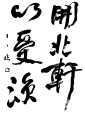 開北軒
以受涼